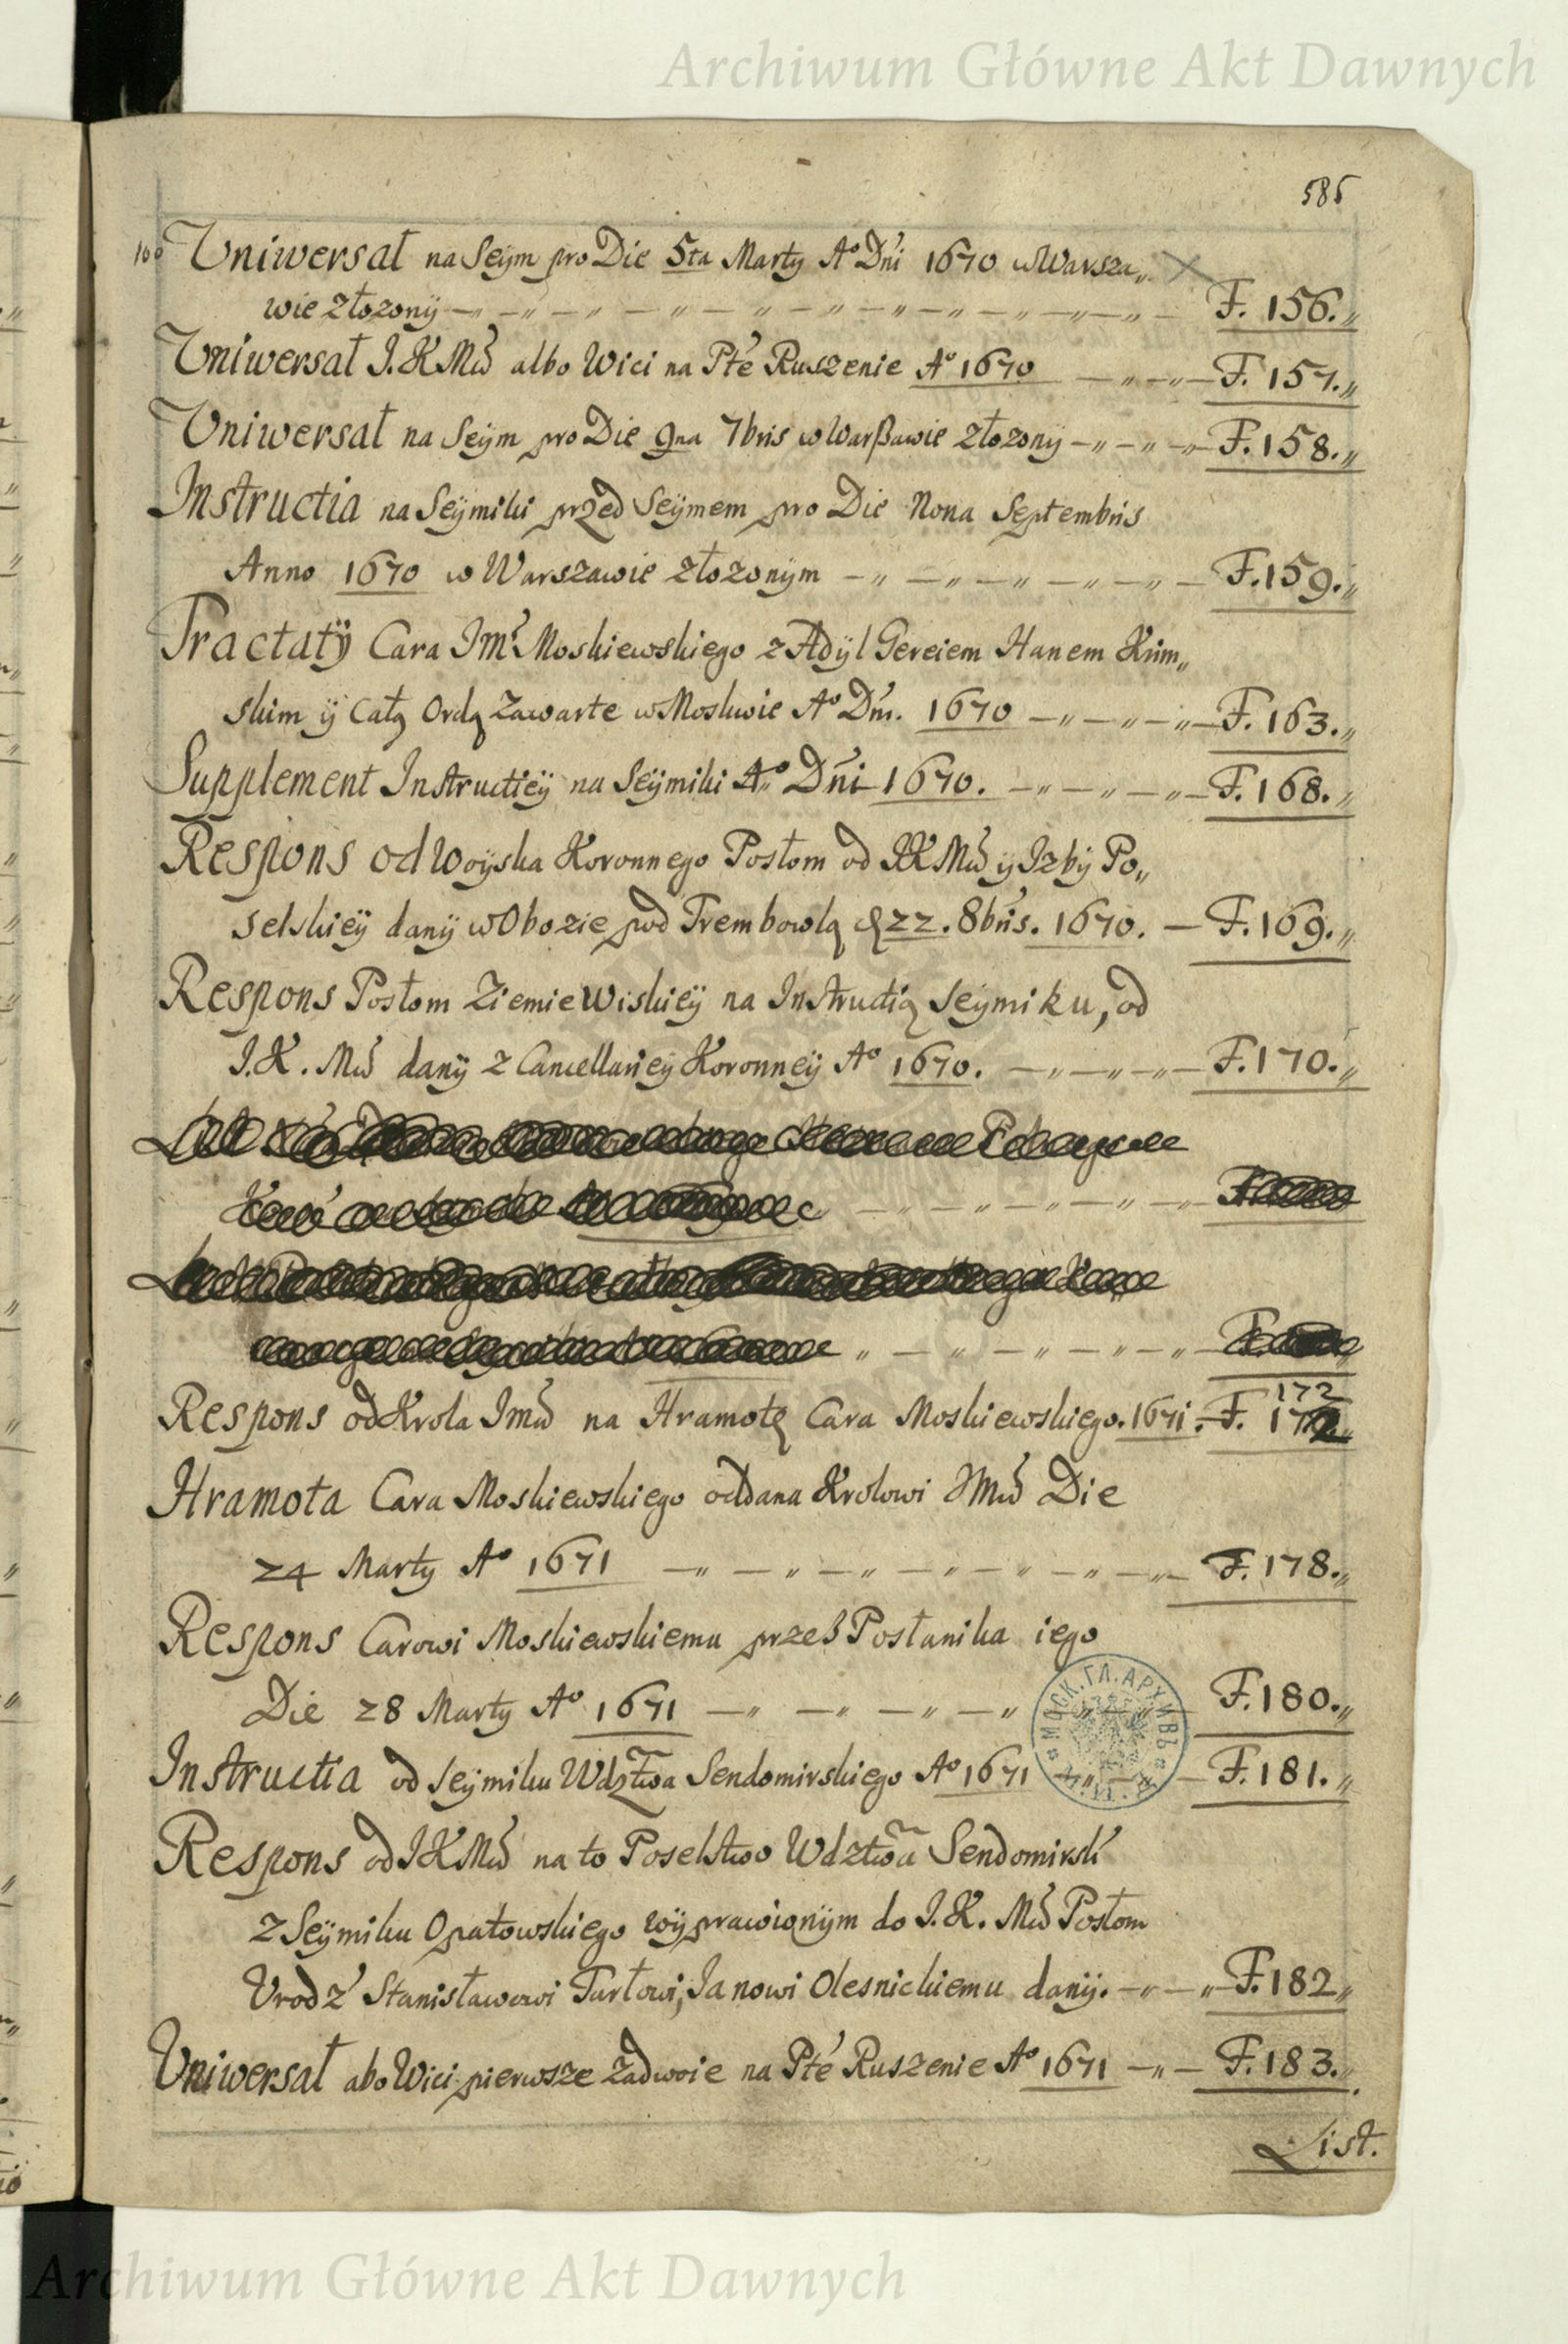 Archiwum Główne Akt Dawnych
585
100 Uniwersał na Seÿm pro Die 5ta Marty A° Dñi 1670 w Warsza„
wie złozonÿ — F. 156.„
Uniwersał J.K Mći albo Wici na Pťé Ruszenie A° 1670 — F. 157.„
Uniwersał na Seÿm pro Die 9na 7bris w Warßawie złozonÿ — F. 158.„
Instructia na Seÿmiki przed Seÿmem pro Die Nona Septembris
Anno 1670 w Warszawie złozonÿm — F. 159.„
Tractatÿ Cara Jmći Moskiewskiego z Adÿl Gereiem Hanem Krim„
skim ÿ całą Ordą zawarte w Moskwie A° Dñi. 1670 — F. 163.„
Supplement Instructieÿ na Seÿmiki A° Dñi 1670. — F. 168.„
Respons od Woÿska Koronnego Posłom od JK Mći ÿ Izbÿ Po„
selskieÿ danÿ w Obozie pod Trembowlą d 22. 8bris. 1670. — F. 169.„
Respons Posłom Ziemie Wiskieÿ na Instructią Seÿmiku, od
J.K. Mći danÿ z Cancellarieÿ Koronneÿ A° 1670. — F. 170.„
Respons od Krola Jmći na Hramotę Cara Moskiewskiego. 1671. — F. 172
Hramota Cara Moskiewskiego oddana Krolowi JMći Die
24 Marty A° 1671 — F. 178.„
Respons Carowi Moskiewskiemu przeß Posłanika iego
Die 28 Marty A° 1671 — F. 180.„
Instructia od Seÿmiku Wdztwa Sendomirskiego A° 1671 — F. 181.„
МОСК.ГЛ.АРХИВЪ
Respons od JKMći na to Poselstwo Wdztwa Sendomirsk
z Seÿmiku Opatowskiego wÿprawionÿm do J.K. Mći Posłom
Urodz Stanisławowi Tarłowi, Janowi Olesnickiemu danÿ. — F. 182„
Uniwersał abo Wici pierwsze zadwoie na Pťé Ruszenie A° 1671 — F. 183.„
List.
Archiwum Główne Akt Dawnych